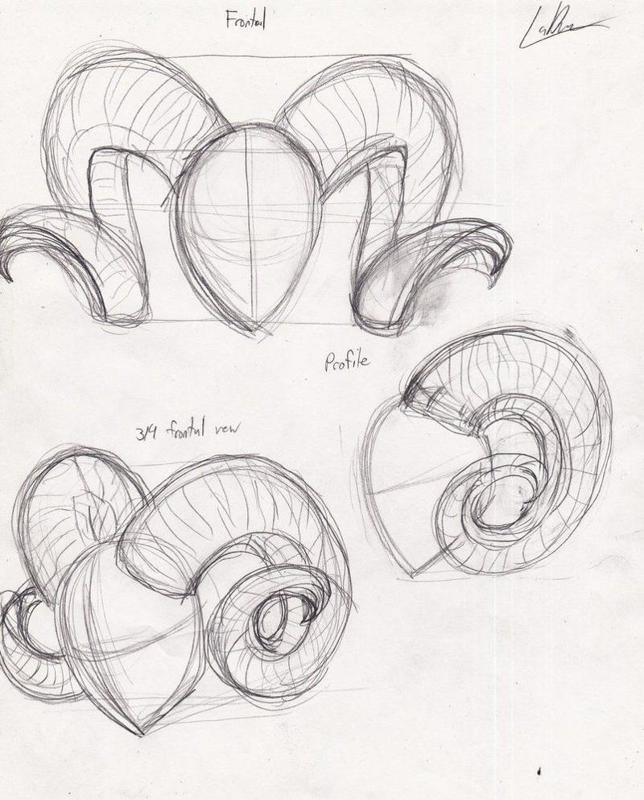 Frontal
Profile
3/4 frontal view